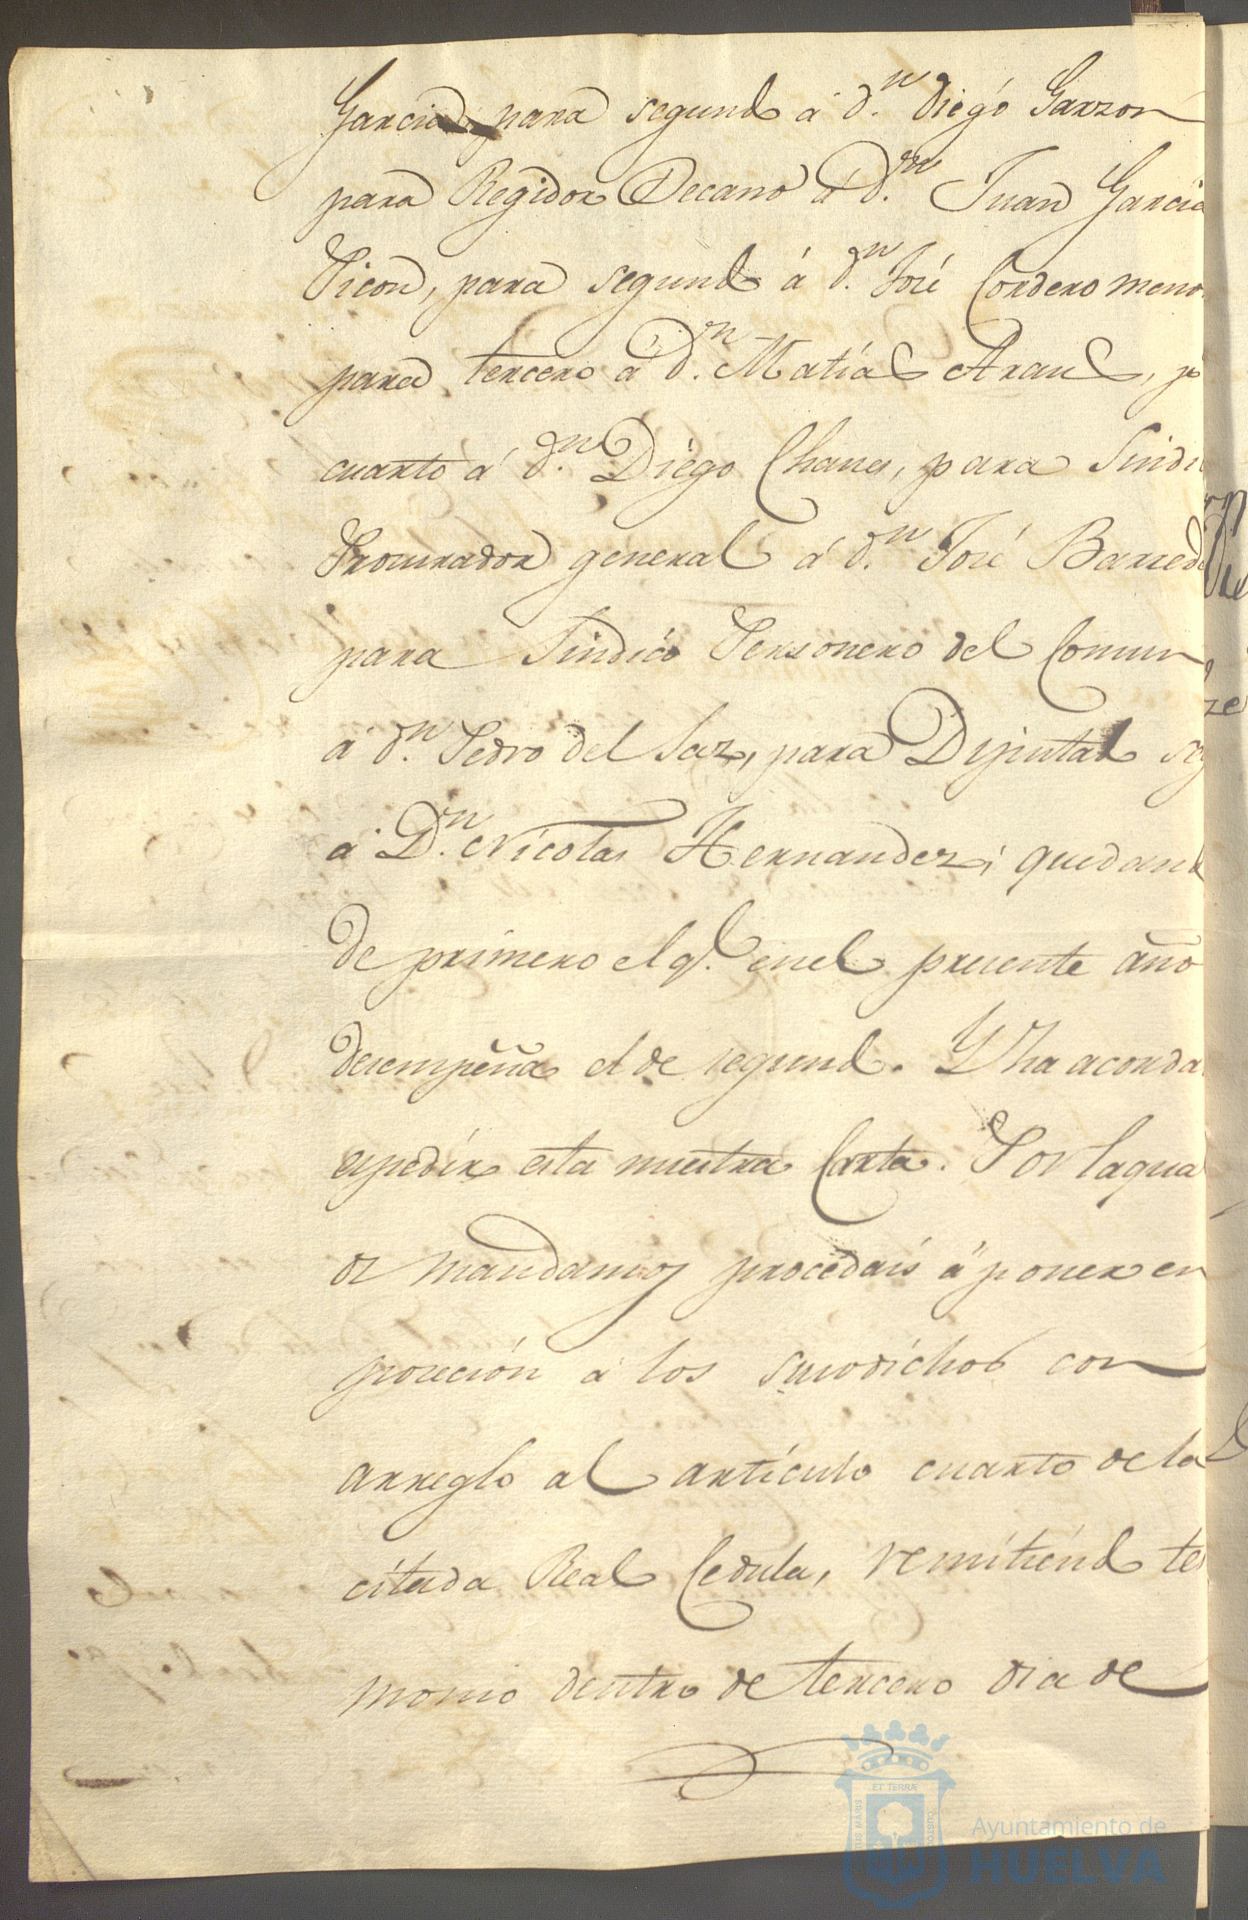 Garcia, para segundo á dn. Diego Garzon
para Regidor Decano á dn. Juan Garcia
Picon, para segundo á dn. José Cordero meno
para tercero á dn. Matías Araus, pa
cuarto á dn. Diego Chaves, para Sindi
Procurador general á dn. José Barred
para Sindico Personero del Comun
á dn. Pedro del Saz, para Diputado seg
á Dn. Nicolas Hernandez; quedand
de primero el ql. en el presente año
desempeña el de segundo. Y ha acorda
expedir esta nuestra Carta. Por la qua
os mandamos procedais á poner en
posecion á los susodichos con
arreglo al artículo cuarto de la
citada Real Cedula, remitiendo tes
monio dentro de tercero dia de
ET TERRÆ
Ayuntamiento de
HUELVA